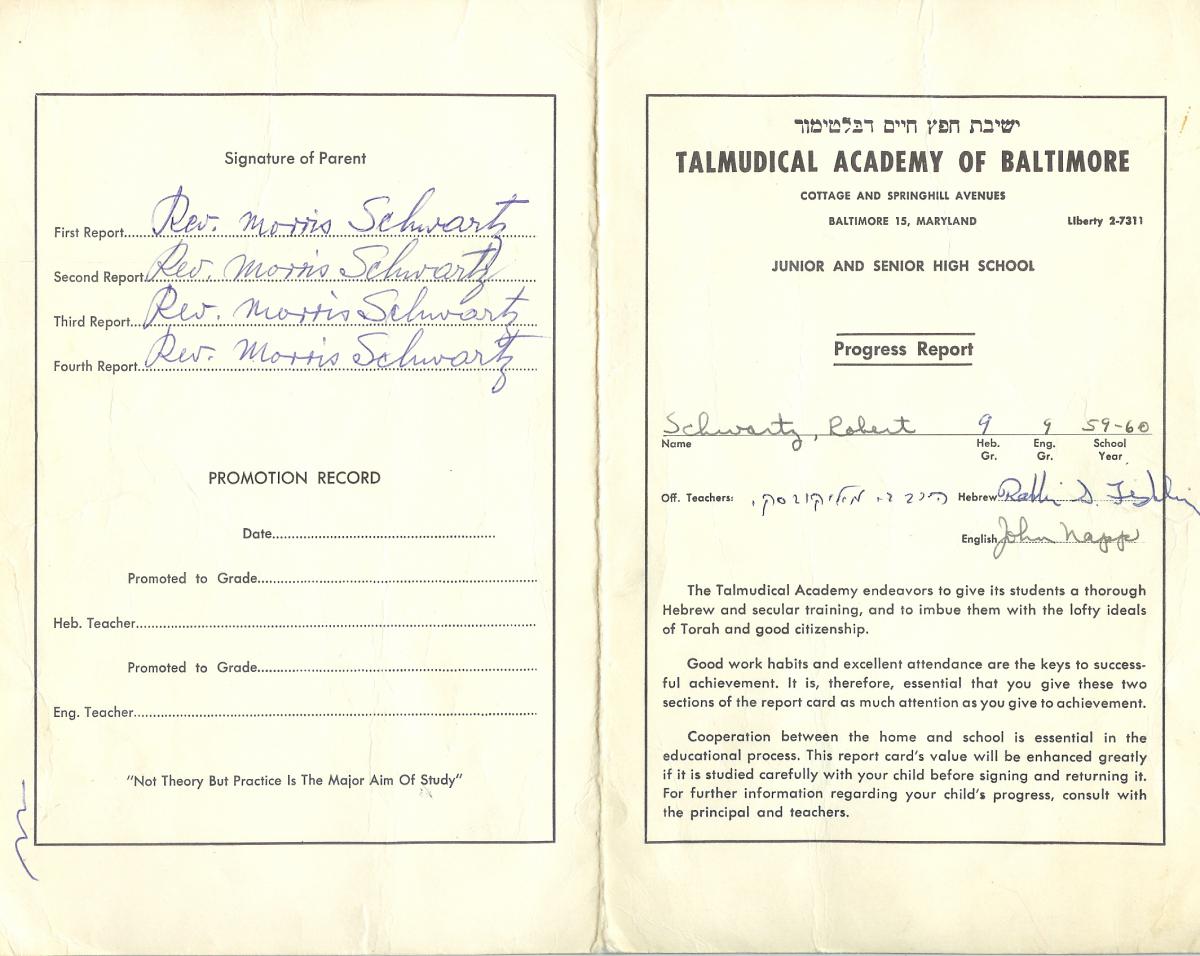 Signature of Parent
First Report Rev. Morris Schwartz
Second Report Rev. Morris Schwartz
Third Report Rev. Morris Schwartz
Fourth Report Rev. Morris Schwartz
PROMOTION RECORD
Date
Promoted to Grade
Heb. Teacher
Promoted to Grade
Eng. Teacher
"Not Theory But Practice Is The Major Aim Of Study"
ישיבת חפץ חיים דבלטימור
TALMUDICAL ACADEMY OF BALTIMORE
COTTAGE AND SPRINGHILL AVENUES
BALTIMORE 15, MARYLAND LIberty 2-7311
JUNIOR AND SENIOR HIGH SCHOOL
Progress Report
Schwartz, Robert 9 9 59-60
Name Heb. Eng. School
Gr. Gr. Year
Off. Teachers: Hebrew Rabbi D.
English John Napp
The Talmudical Academy endeavors to give its students a thorough
Hebrew and secular training, and to imbue them with the lofty ideals
of Torah and good citizenship.
Good work habits and excellent attendance are the keys to success-
ful achievement. It is, therefore, essential that you give these two
sections of the report card as much attention as you give to achievement.
Cooperation between the home and school is essential in the
educational process. This report card's value will be enhanced greatly
if it is studied carefully with your child before signing and returning it.
For further information regarding your child's progress, consult with
the principal and teachers.